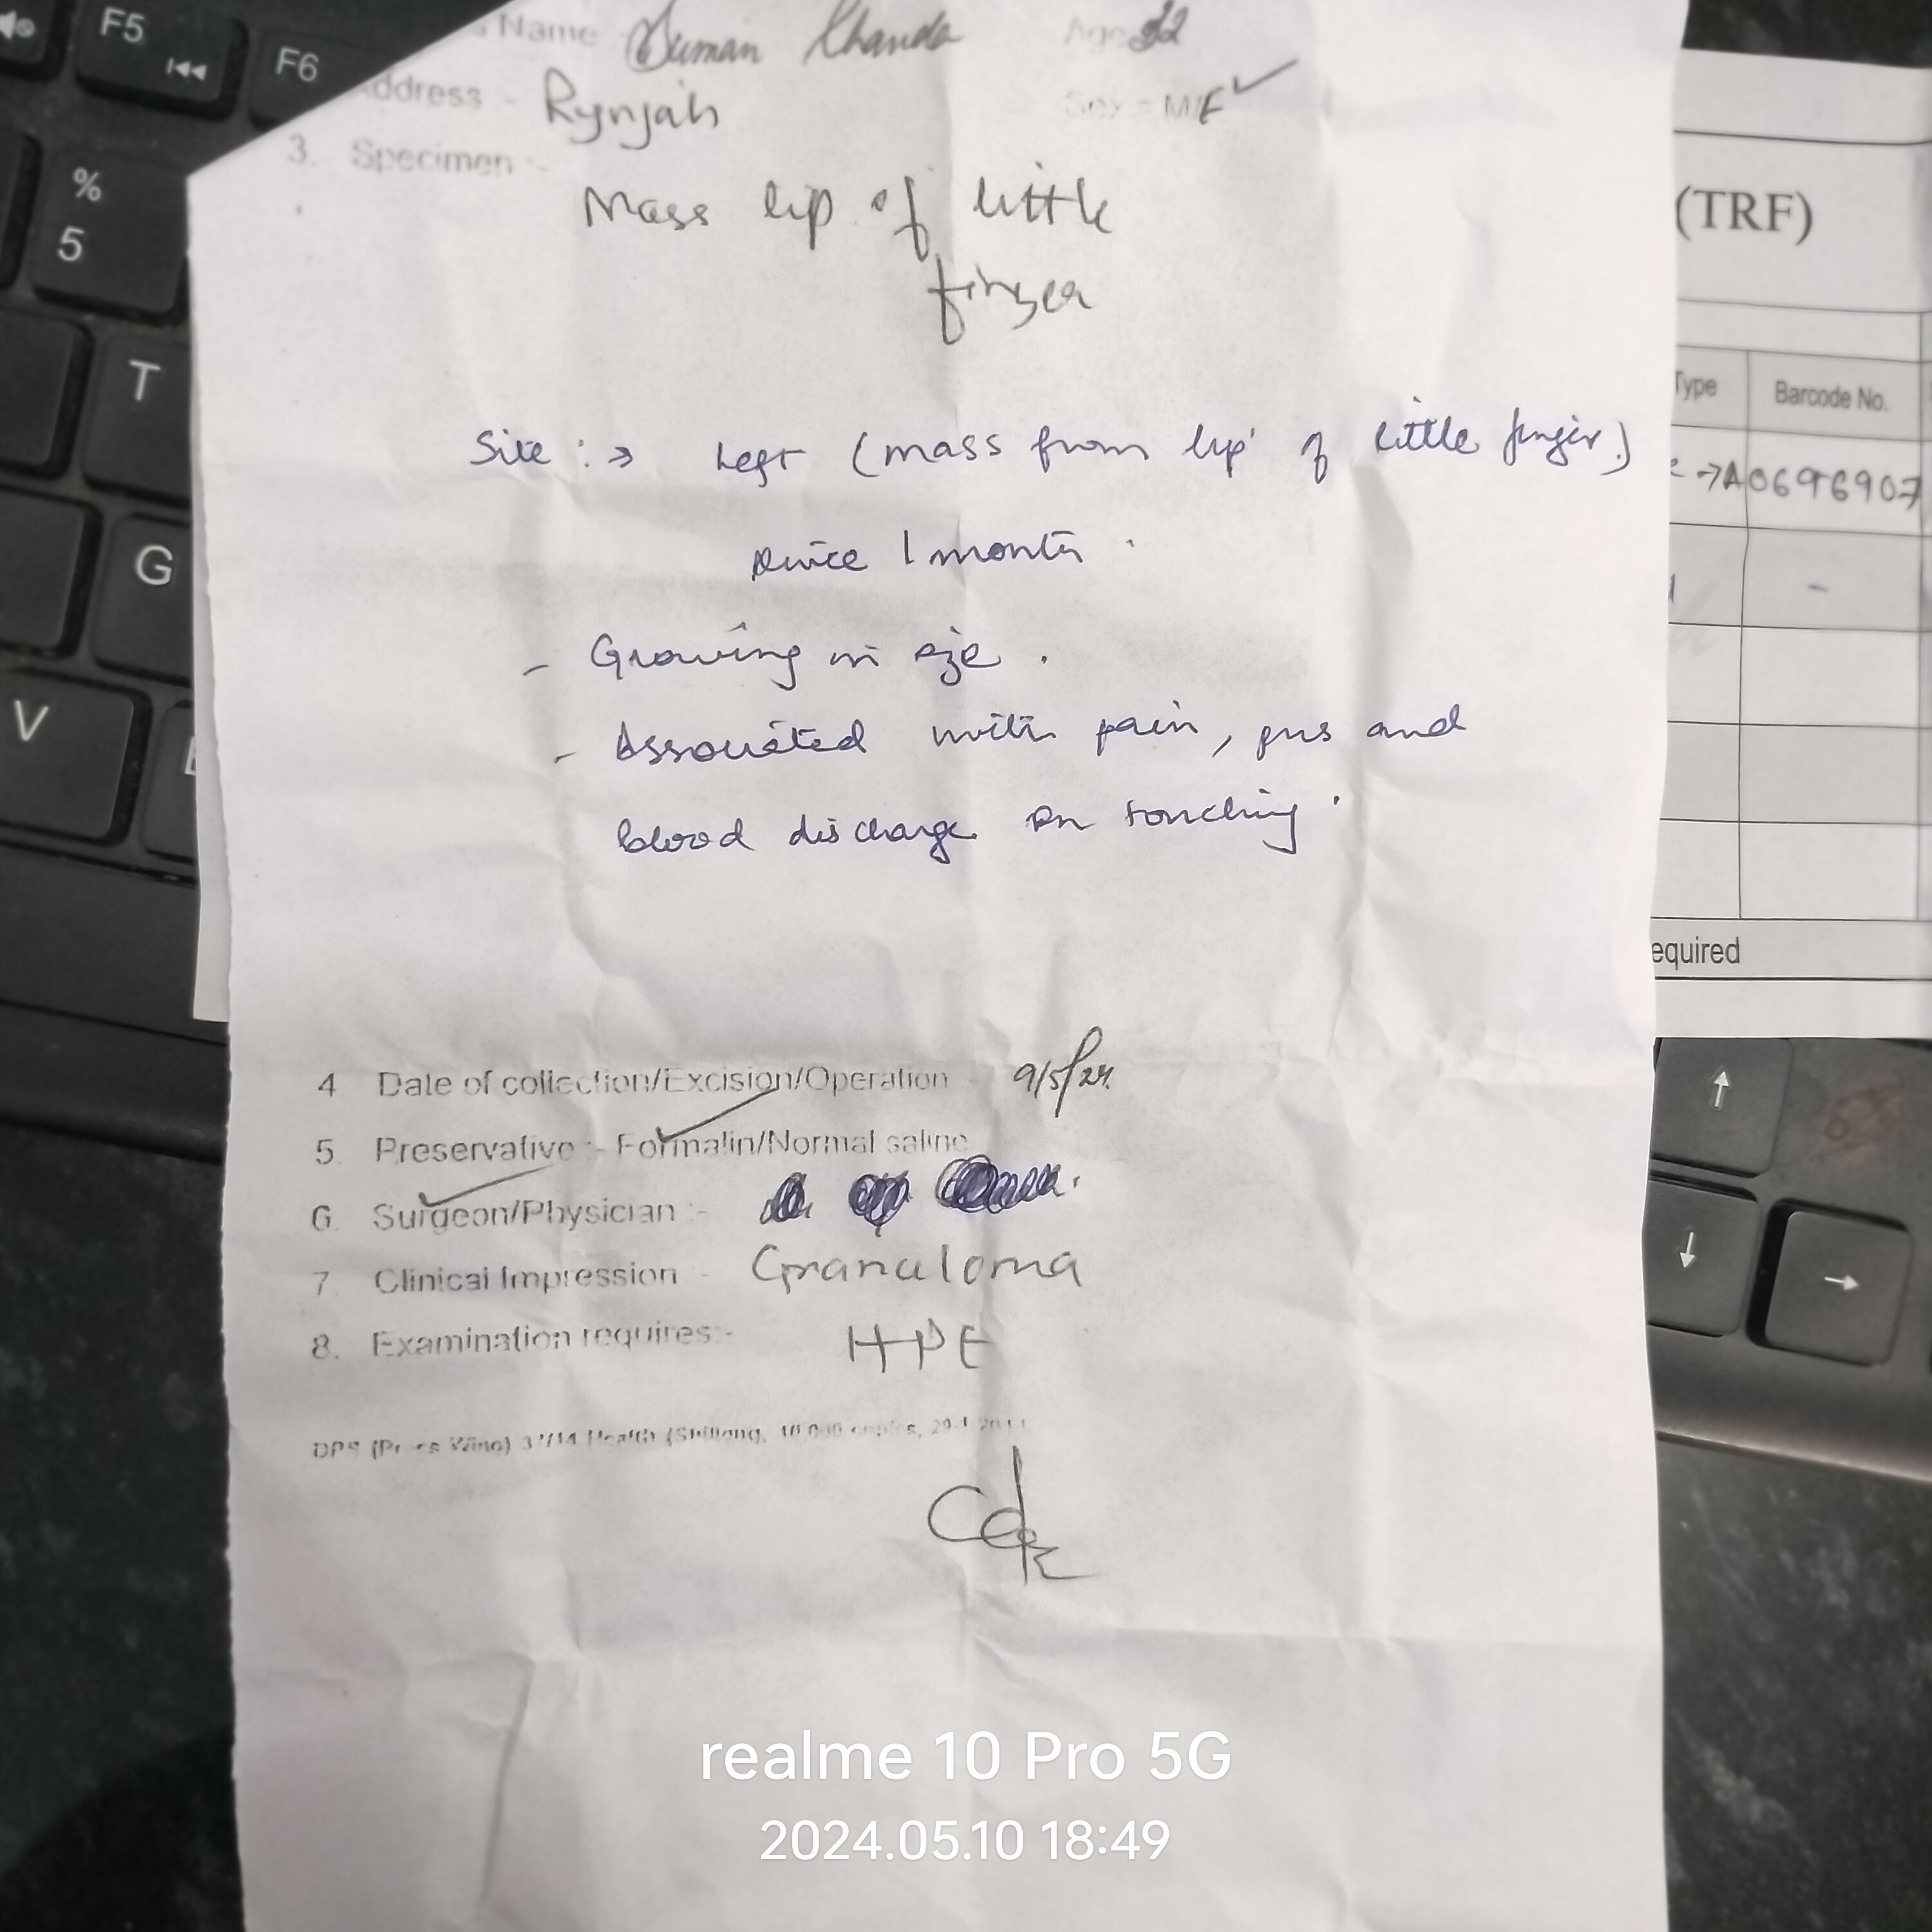 Name Suman Chanda Age 32
Address - Rynjah Sex - M/F
3. Specimen :-
Mass lip of little
finger
Site :→ Left (mass from lip of little finger)
since 1 month.
- Growing in size.
- Associated with pain, pus and
blood discharge on touching.
4 Date of collection/Excision/Operation - 9/5/24.
5. Preservative :- Formalin/Normal saline
6. Surgeon/Physician :-
7 Clinical Impression - Granuloma
8. Examination requires:- HPE
DPS (Press Wing) Health (Shillong, copies,
(TRF)
Type Barcode No.
→A0696907
-
equired
F5
F6
%
5
T
G
V
↑
↓
→
realme 10 Pro 5G
2024.05.10 18:49